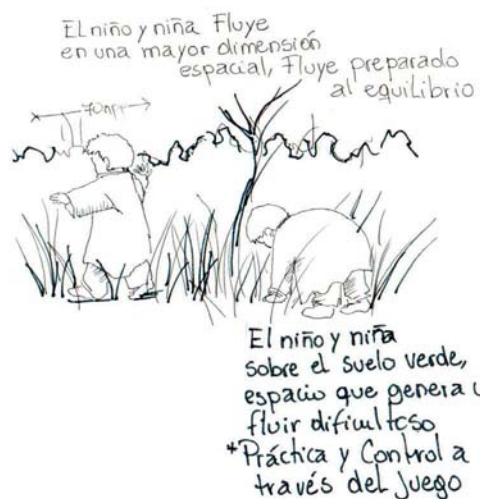 El niño y niña Fluye
en una mayor dimensión
espacial, Fluye preparado
al equilibrio
El niño y niña
sobre el suelo verde,
espacio que genera u
fluir dificultoso
*Práctica y Control a
través del Juego